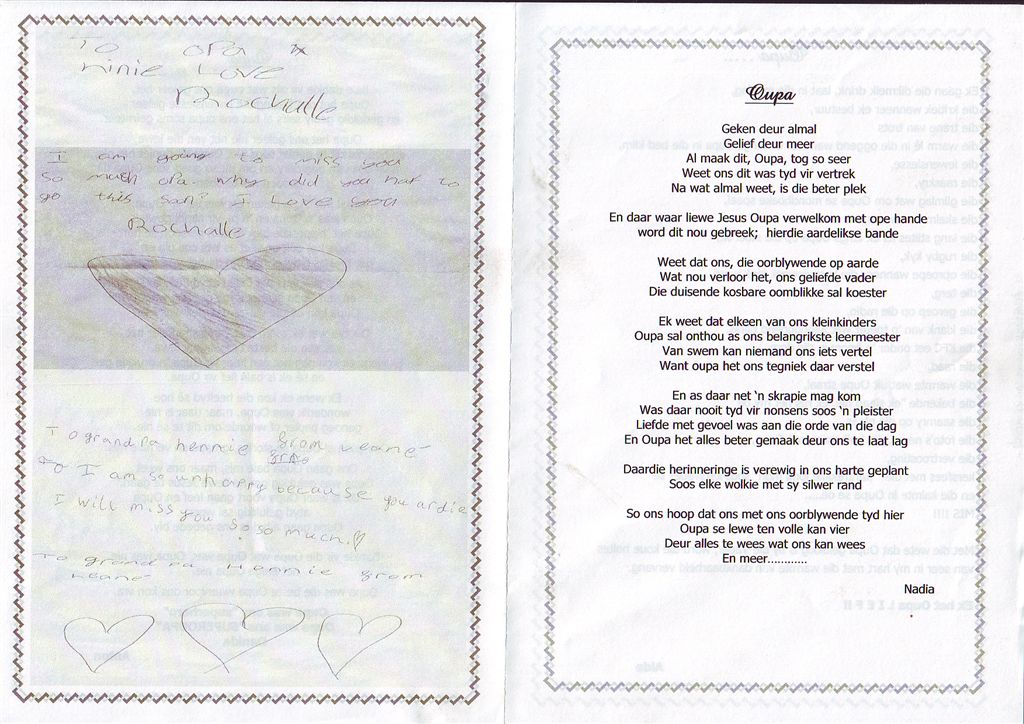 To opa
ninie Love
Rochalle
I am going to miss you
so much opa. why did you haf to
go this san? I Love you
Rochalle
To grandpa hennie from neane
I am so unhappy because you ardie
I will miss you so so much.
To grand pa Hennie from
neane
Oupa
Geken deur almal
Gelief deur meer
Al maak dit, Oupa, tog so seer
Weet ons dit was tyd vir vertrek
Na wat almal weet, is die beter plek
En daar waar liewe Jesus Oupa verwelkom met ope hande
word dit nou gebreek; hierdie aardelikse bande
Weet dat ons, die oorblywende op aarde
Wat nou verloor het, ons geliefde vader
Die duisende kosbare oomblikke sal koester
Ek weet dat elkeen van ons kleinkinders
Oupa sal onthou as ons belangrikste leermeester
Van swem kan niemand ons iets vertel
Want oupa het ons tegniek daar verstel
En as daar net 'n skrapie mag kom
Was daar nooit tyd vir nonsens soos 'n pleister
Liefde met gevoel was aan die orde van die dag
En Oupa het alles beter gemaak deur ons te laat lag
Daardie herinneringe is verewig in ons harte geplant
Soos elke wolkie met sy silwer rand
So ons hoop dat ons met ons oorblywende tyd hier
Oupa se lewe ten volle kan vier
Deur alles te wees wat ons kan wees
En meer............
Nadia